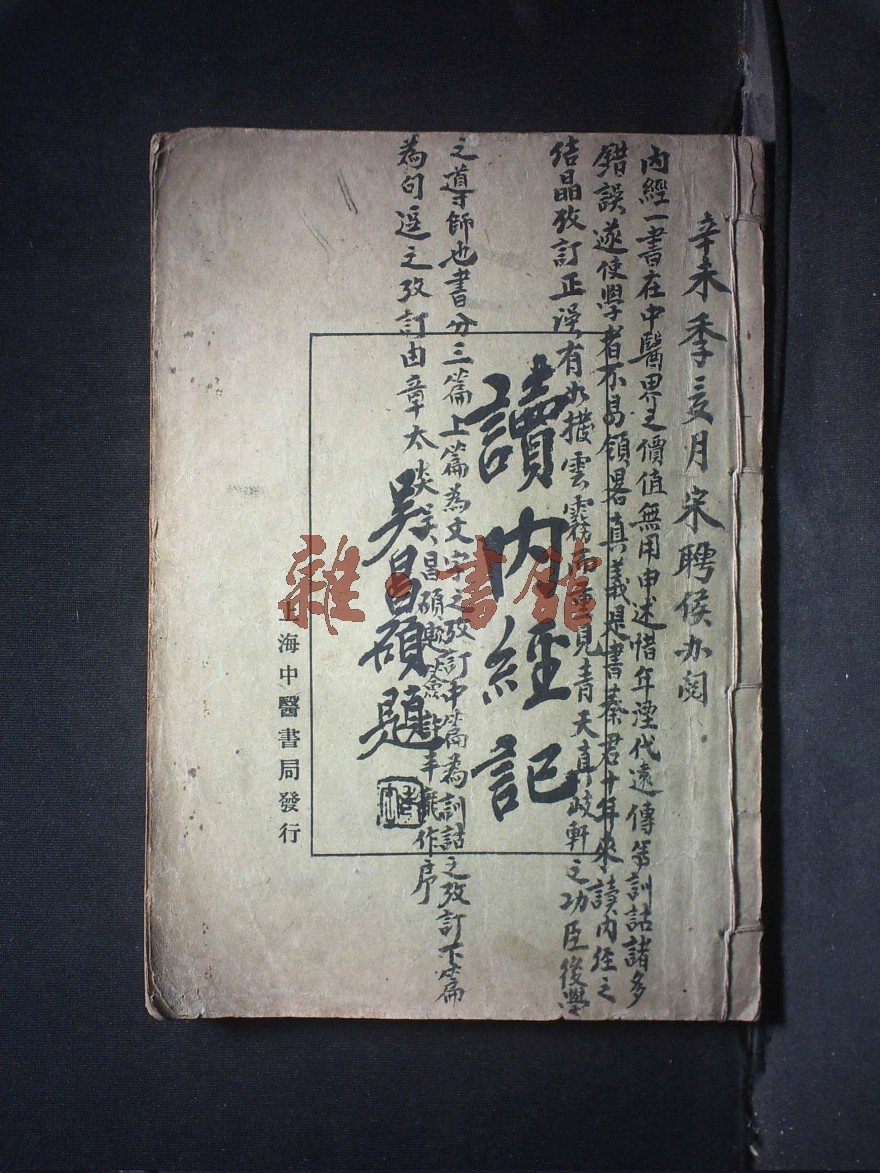 辛未季夏月宋聘侯办阅
内經一書在中醫界之價值無用申述惜年湮代遠傳寫訓詁諸多
錯誤遂使學者不易領畧真義是書秦君十年來讀内經之
結晶攷訂正誤有如撥雲霧而重見青天真岐軒之功臣後學
之導師也書分三篇上篇為文字之攷訂中篇為訓詁之攷訂下篇
為句逗之攷訂由章太炎吴昌碩作序
讀内經記
吴昌碩題
上海中醫書局發行
雜·書館